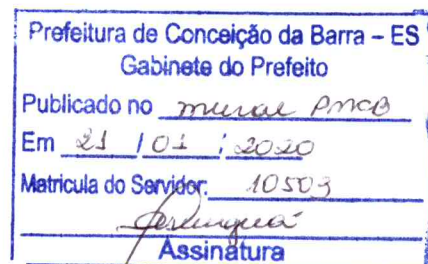 Prefeitura de Conceição da Barra – ES
Gabinete do Prefeito
Publicado no mural PMCB
Em 21 / 01 / 2020
Matricula do Servidor: 10503
Assinatura